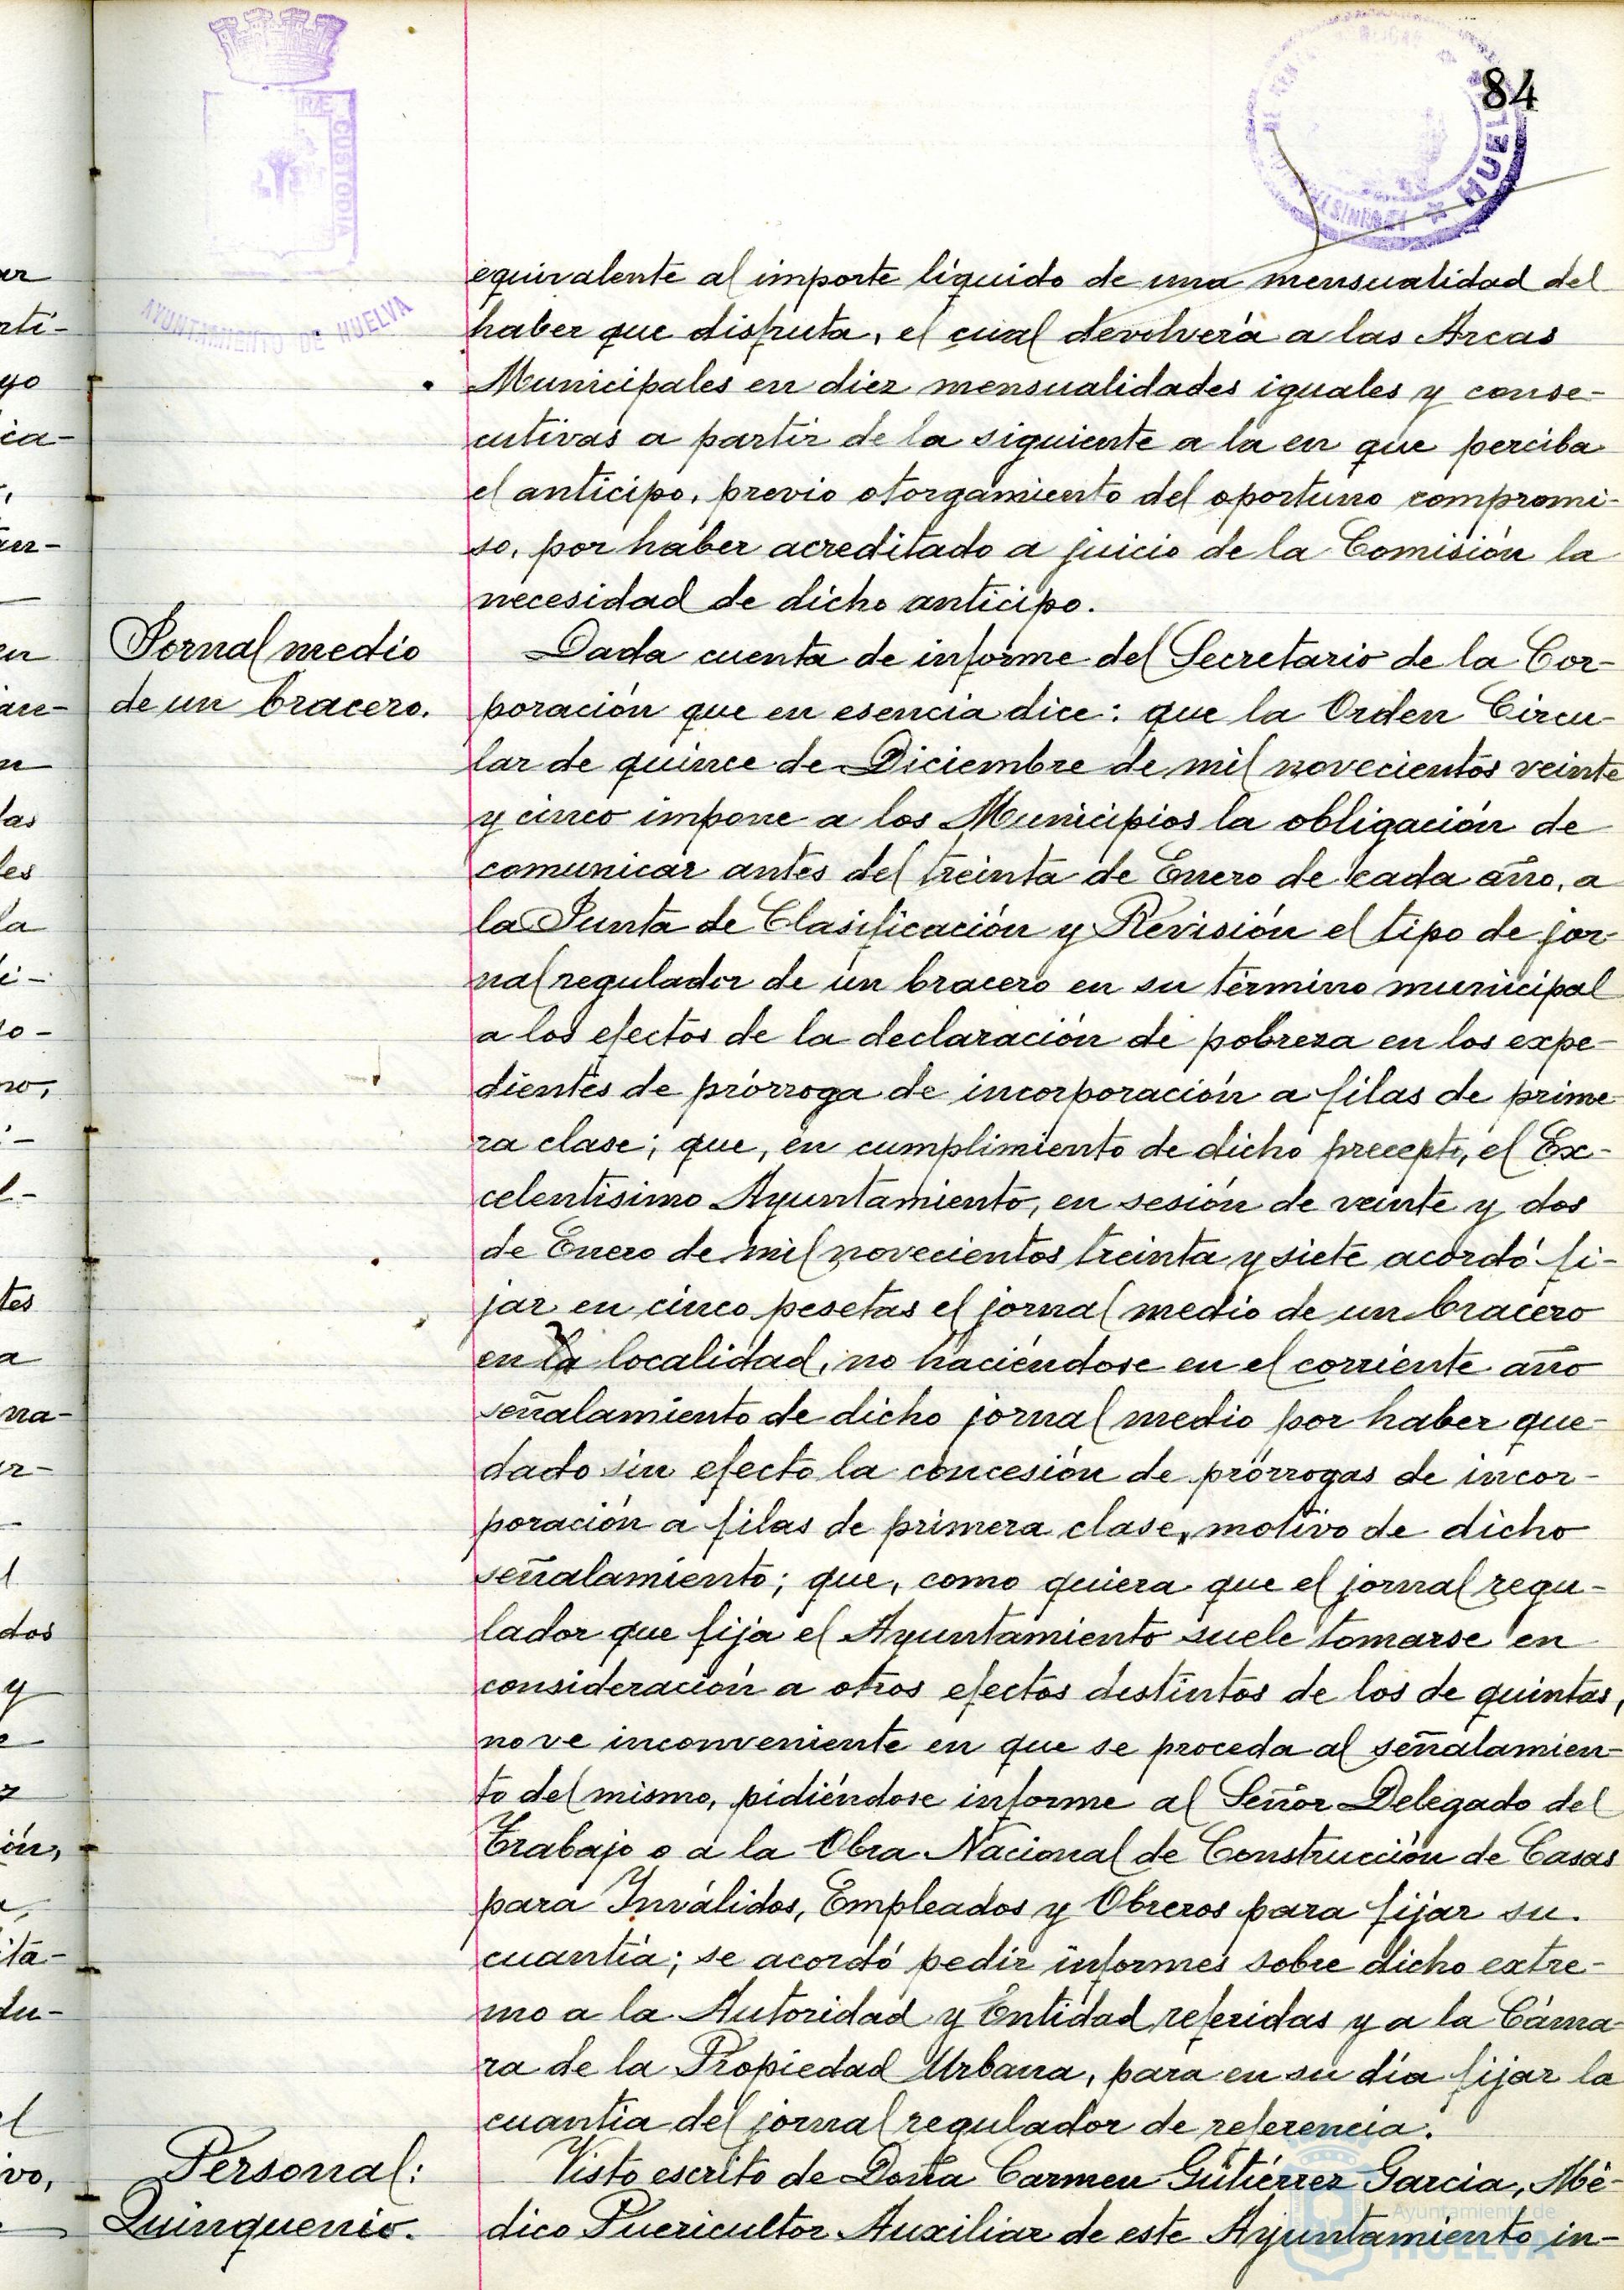 84
HUELVA
CUSTODIA
AYUNTAMIENTO DE HUELVA
equivalente al importe líquido de una mensualidad del
haber que disfruta, el cual devolverá a las Arcas
Municipales en diez mensualidades iguales y conse-
cutivas a partir de la siguiente a la en que perciba
el anticipo, previo otorgamiento del oportuno compromi-
so, por haber acreditado a juicio de la Comisión la
necesidad de dicho anticipo.
Jornal medio
de un bracero.
Dada cuenta de informe del Secretario de la Cor-
poración que en esencia dice: que la Orden Circu-
lar de quince de Diciembre de mil novecientos veinte
y cinco impone a los Municipios la obligación de
comunicar antes del treinta de Enero de cada año, a
la Junta de Clasificación y Revisión el tipo de jor-
nal regulador de un bracero en su término municipal
a los efectos de la declaración de pobreza en los expe-
dientes de prórroga de incorporación a filas de prime-
ra clase; que, en cumplimiento de dicho precepto, el Ex-
celentísimo Ayuntamiento, en sesión de veinte y dos
de Enero de mil novecientos treinta y siete acordó fi-
jar en cinco pesetas el jornal medio de un bracero
en la localidad, no haciéndose en el corriente año
señalamiento de dicho jornal medio por haber que-
dado sin efecto la concesión de prórrogas de incor-
poración a filas de primera clase, motivo de dicho
señalamiento; que, como quiera que el jornal regu-
lador que fija el Ayuntamiento suele tomarse en
consideración a otros efectos distintos de los de quintas,
no ve inconveniente en que se proceda al señalamien-
to del mismo, pidiéndose informe al Señor Delegado del
Trabajo o a la Obra Nacional de Construcción de Casas
para Inválidos, Empleados y Obreros para fijar su
cuantía; se acordó pedir informes sobre dicho extre-
mo a la Autoridad y Entidad referidas y a la Cáma-
ra de la Propiedad Urbana, para en su día fijar la
cuantía del jornal regulador de referencia.
Personal:
Quinquenio.
Visto escrito de Doña Carmen Gutiérrez García, Mé-
dico Puericultor Auxiliar de este Ayuntamiento in-
Ayuntamiento de
HUELVA